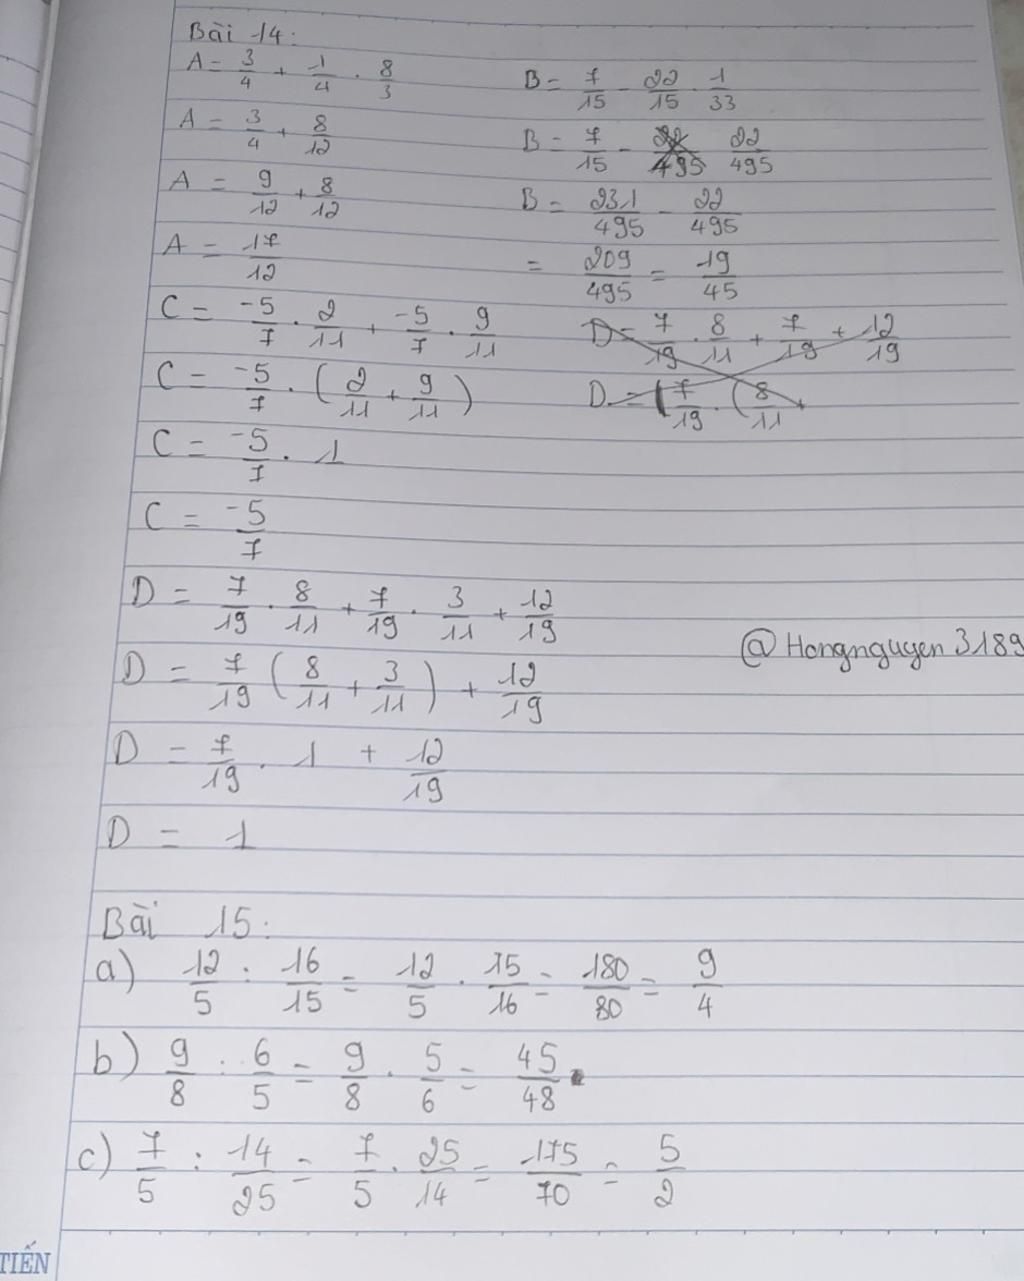 Bài 14:
A = 3/4 + 1/4 . 8/3
A = 3/4 + 8/12
A = 9/12 + 8/12
A = 17/12
B = 7/15 - 22/15 . 1/33
B = 7/15 - 22/495 22/495
B = 231/495 - 22/495
= 209/495 = 19/45
C = -5/7 . 2/11 + -5/7 . 9/11
C = -5/7 . (2/11 + 9/11)
C = -5/7 . 1
C = -5/7
D = 7/19 . 8/11 + 7/19 + 12/19
D = (7/19 . (8/11 +
D = 7/19 . 8/11 + 7/19 . 3/11 + 12/19
D = 7/19 (8/11 + 3/11) + 12/19
D = 7/19 . 1 + 12/19
D = 1
@Hongnguyen3189
Bài 15:
a) 12/5 : 16/15 = 12/5 . 15/16 = 180/80 = 9/4
b) 9/8 : 6/5 = 9/8 . 5/6 = 45/48
c) 7/5 : 14/25 = 7/5 . 25/14 = 175/70 = 5/2
TIẾN